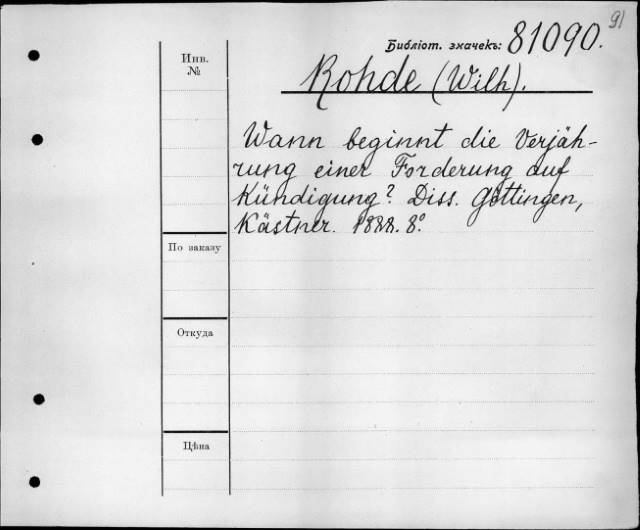 91
Библіот. значекъ: 81090.
Инв.
№
Rohde (Wilh).
Wann beginnt die Verjäh-
rung einer Forderung auf
Kündigung? Diss. Göttingen,
Kästner. 1888. 8°.
По заказу
Откуда
Цѣна